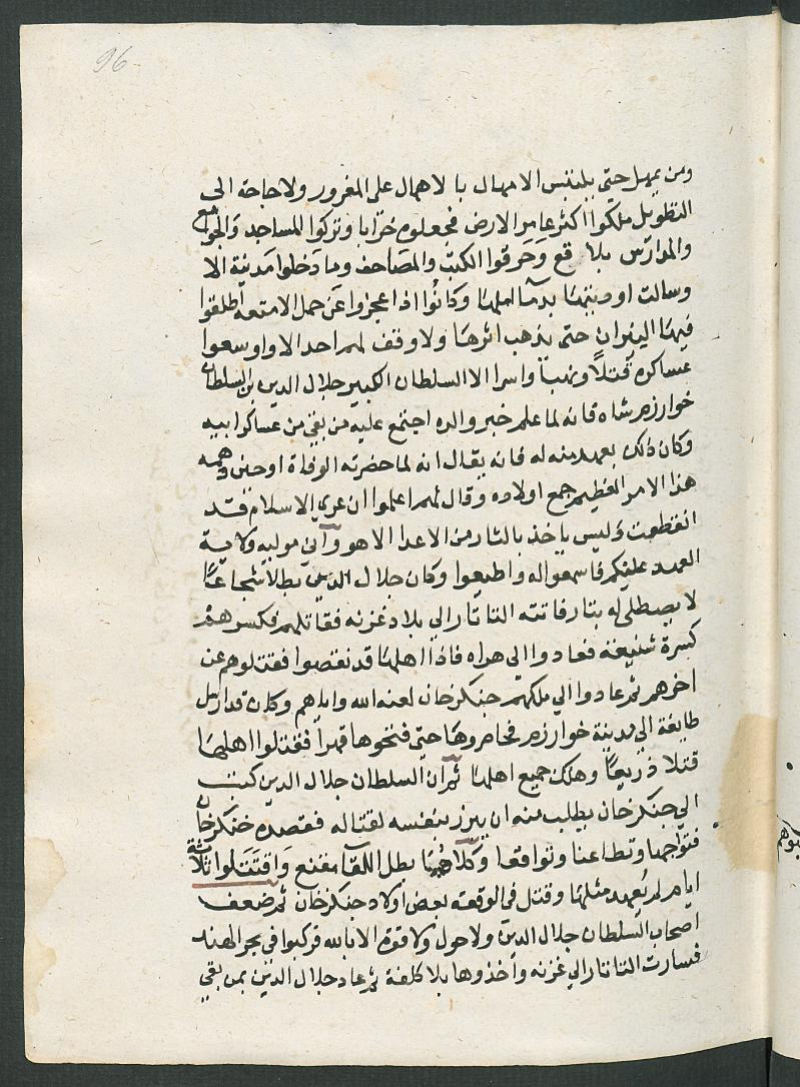 96
ومن يمهل حتى يلتبس الامهال بالاهمال على المغرور ولا حاجة الى
التطويل ملكوا اكثر عامر الارض فجعلوه خرابا وتركوا المساجد والجوامع
والمدارس بلاقع وحرقوا الكتب والمصاحف وما دخلوا مدينة الا
وسالت اوديتها بدما اهلها وكانوا اذا عجزوا عن حمل الامتعه اطلقوا
فيها النيران حتى يذهب اثرها ولا وقف لهم احد الا واوسعوا
عساكره قتلاً ونهبا واسرا الا السلطان الكبير جلال الدين بن السلطان
خوارزم شاه فانه لما علم خبر والده اجتمع عليه من بقي من عساكر ابيه
وكان ذلك بعهد منه له فانه يقال انه لما حضرته الوفاة او حين دهمه
هذا الامر العظيم جمع اولاده وقال لهم اعلموا ان عرى الاسلام قد
انقطعت وليس ياخذ بالثار من الاعدا الا هو وآني موليه ولاية
العهد عليكم فاسمعوا له واطيعوا وكان جلال الدين بطلا شجاعًا
لا يصطلى له بنار فاتته التاتار الي بلاد غزنه فقاتلهم فكسرهم
كسرة شنيعة فعادوا الى هراه فاذا اهلها قد نقضوا فقتلوهم عن
اخرهم ثم عادوا الي ملكهم جنكزخان لعنه الله واياهم وكان قد ارسل
طايفة الي مدينة خوارزم فحاصروها حتى فتحوها قهراً فقتلوا اهلها
قتلا ذريعًا وهلك جميع اهلها ثم ان السلطان جلال الدين كتب
الي جنكزخان يطلب منه ان يبرز بنفسه لقتاله فقصده جنكزخان
فتواجها وتطاعنا وتواقعا وكلاهما بطل اللقا مقنع واقتتلوا ثلاثة
ايام لم يُعهد مثلها وقتل في الوقعة بعض اولاد جنكزخان ثم ضعف
اصحاب السلطان جلال الدين ولا حول ولا قوة الا بالله فركبوا في بحر الهند
فسارت التاتار الي غزنه واخذوها بلا كلفة ثم عاد جلال الدين بمن بقي